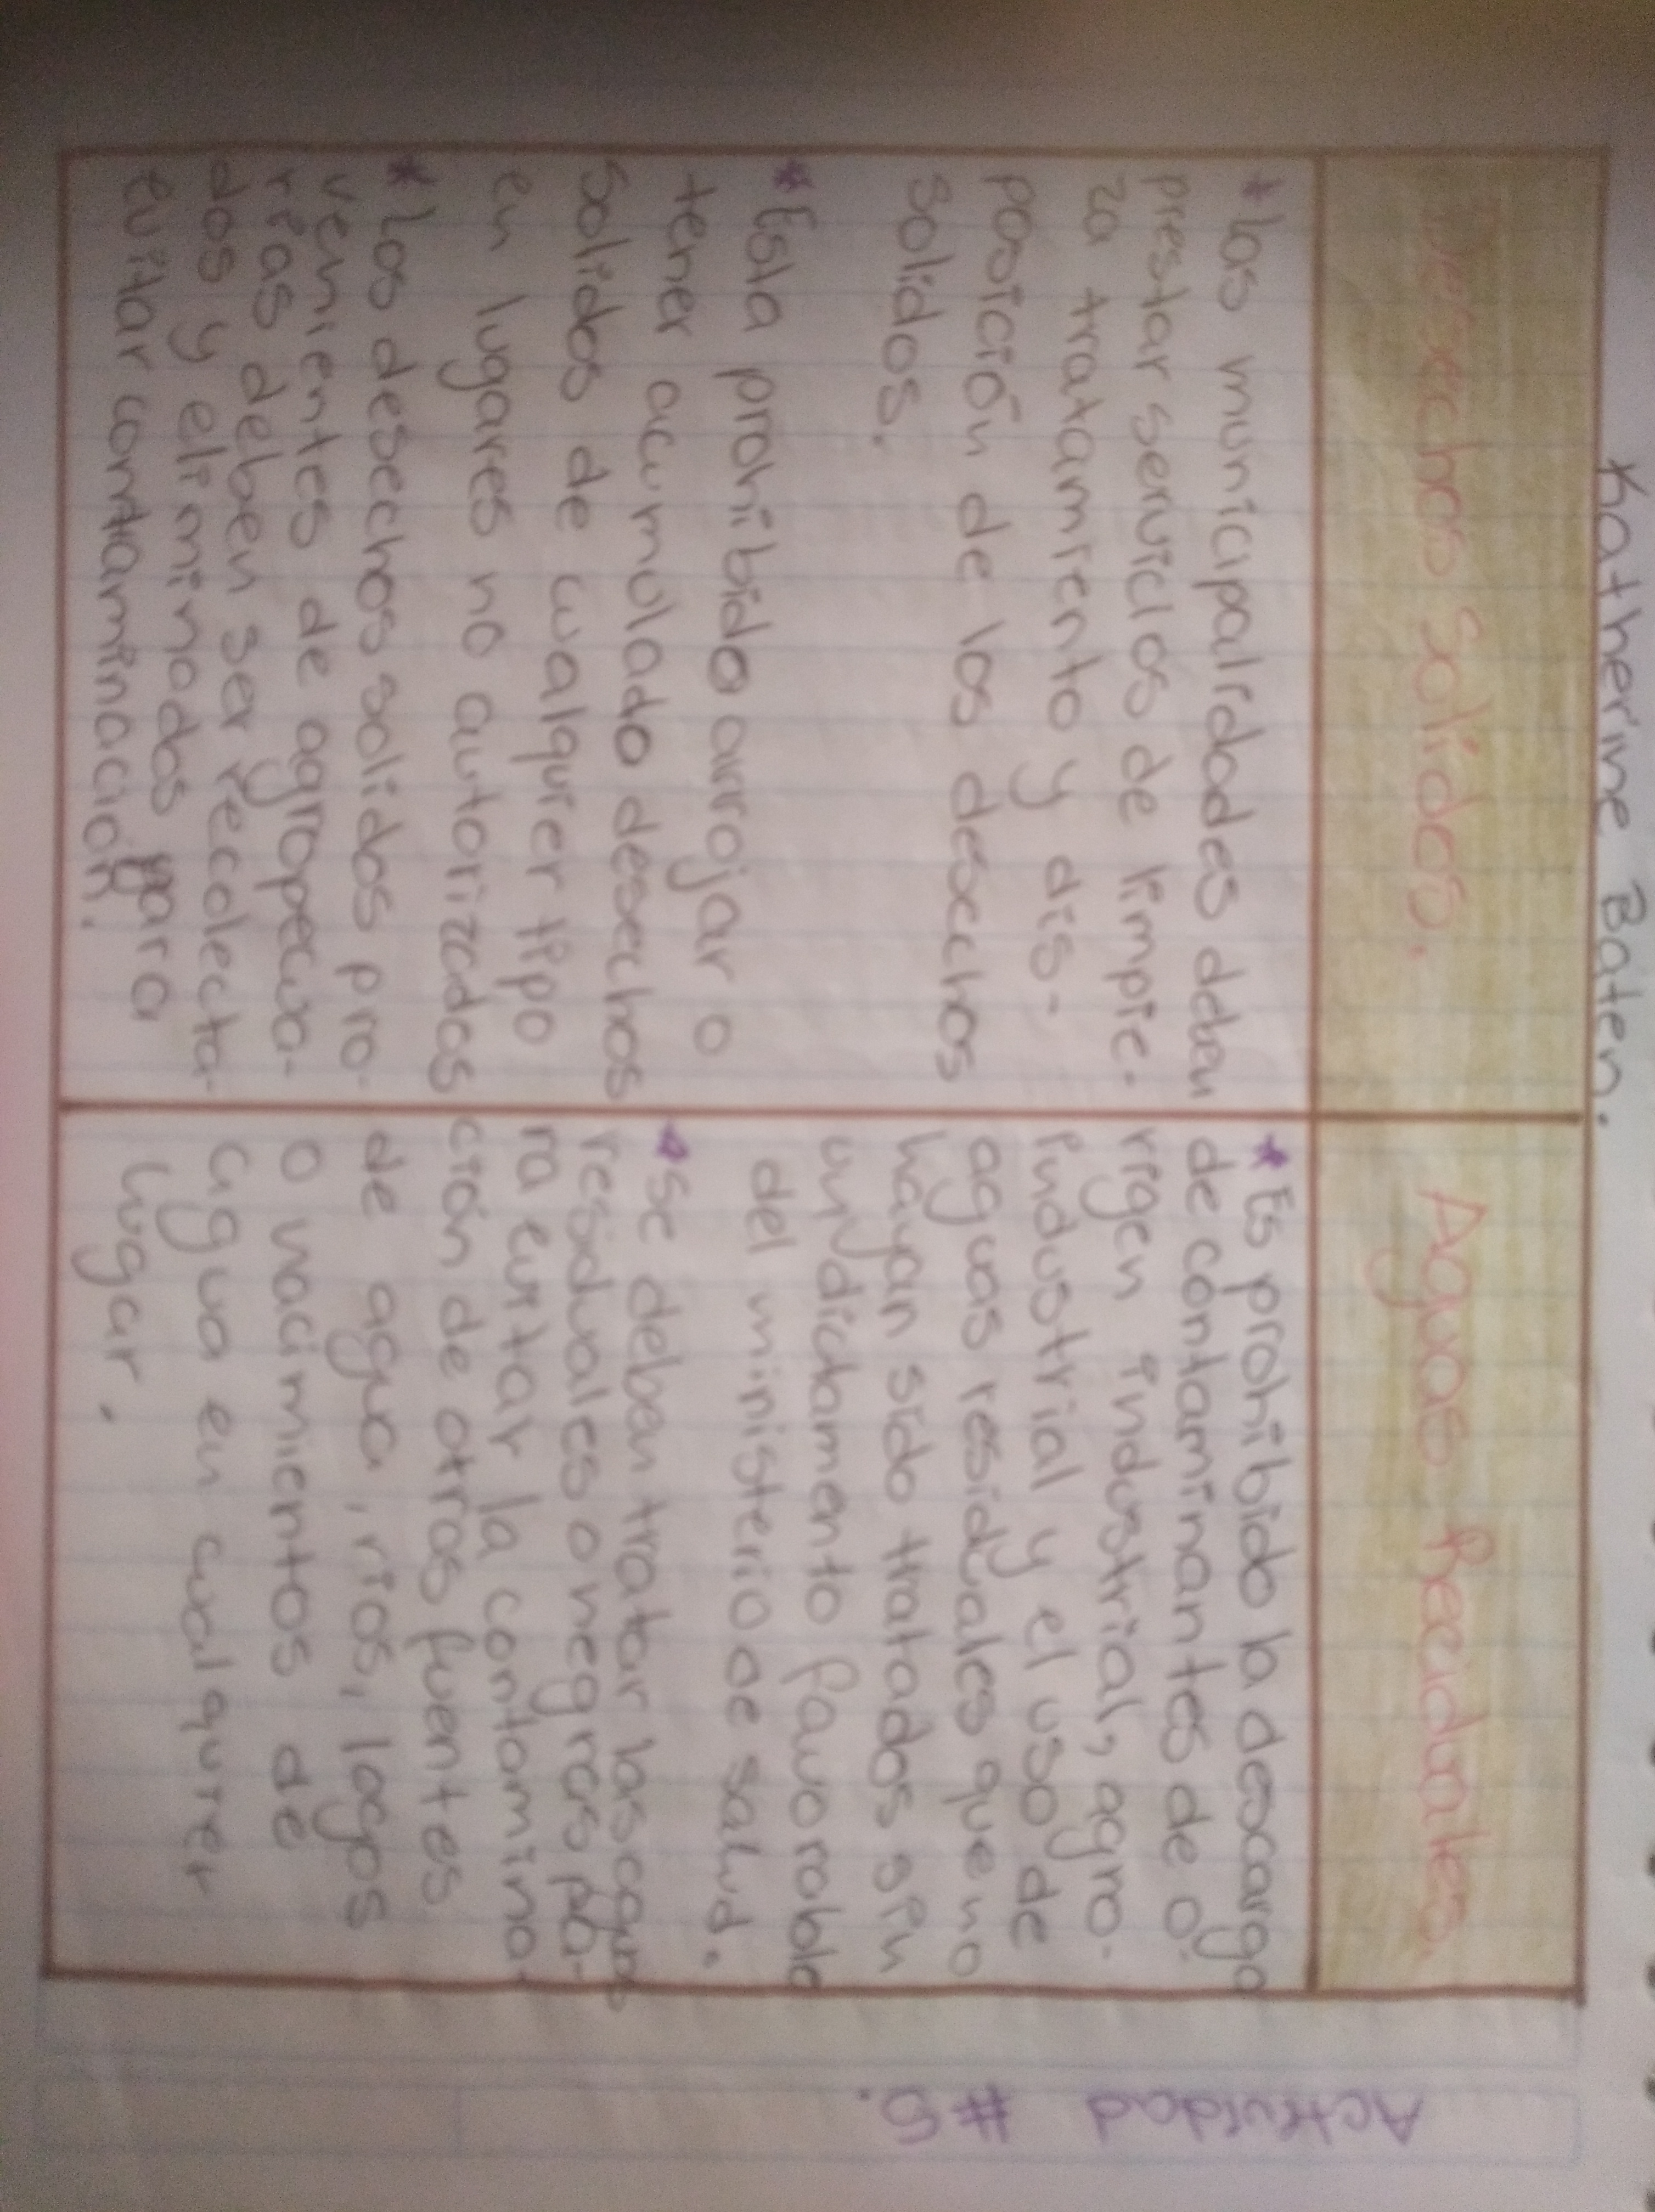 Katherine Baten.
Desechos Solidos.
* Las municipalidades deben
prestar servicios de limpie-
za tratamiento y dis-
posición de los desechos
solidos.
* Esta prohibido arrojar o
tener acumulado desechos
solidos de cualquier tipo
en lugares no autorizados
* Los desechos solidos pro-
venientes de agropecua-
rias deben ser recolecta-
dos y eliminados para
evitar contaminación.
Aguas Reciduales.
* Es prohibido la descarga
de contaminantes de o-
rigen industrial, agro-
industrial y el uso de
aguas residuales que no
hayan sido tratados sin
un dictamento favorable
del ministerio de salud.
* se deben tratar las aguas
residuales o negras pa-
ra evitar la contamina-
ción de otras fuentes
de agua, rios, lagos
o nacimientos de
agua en cualquier
lugar.
Actividad #5.